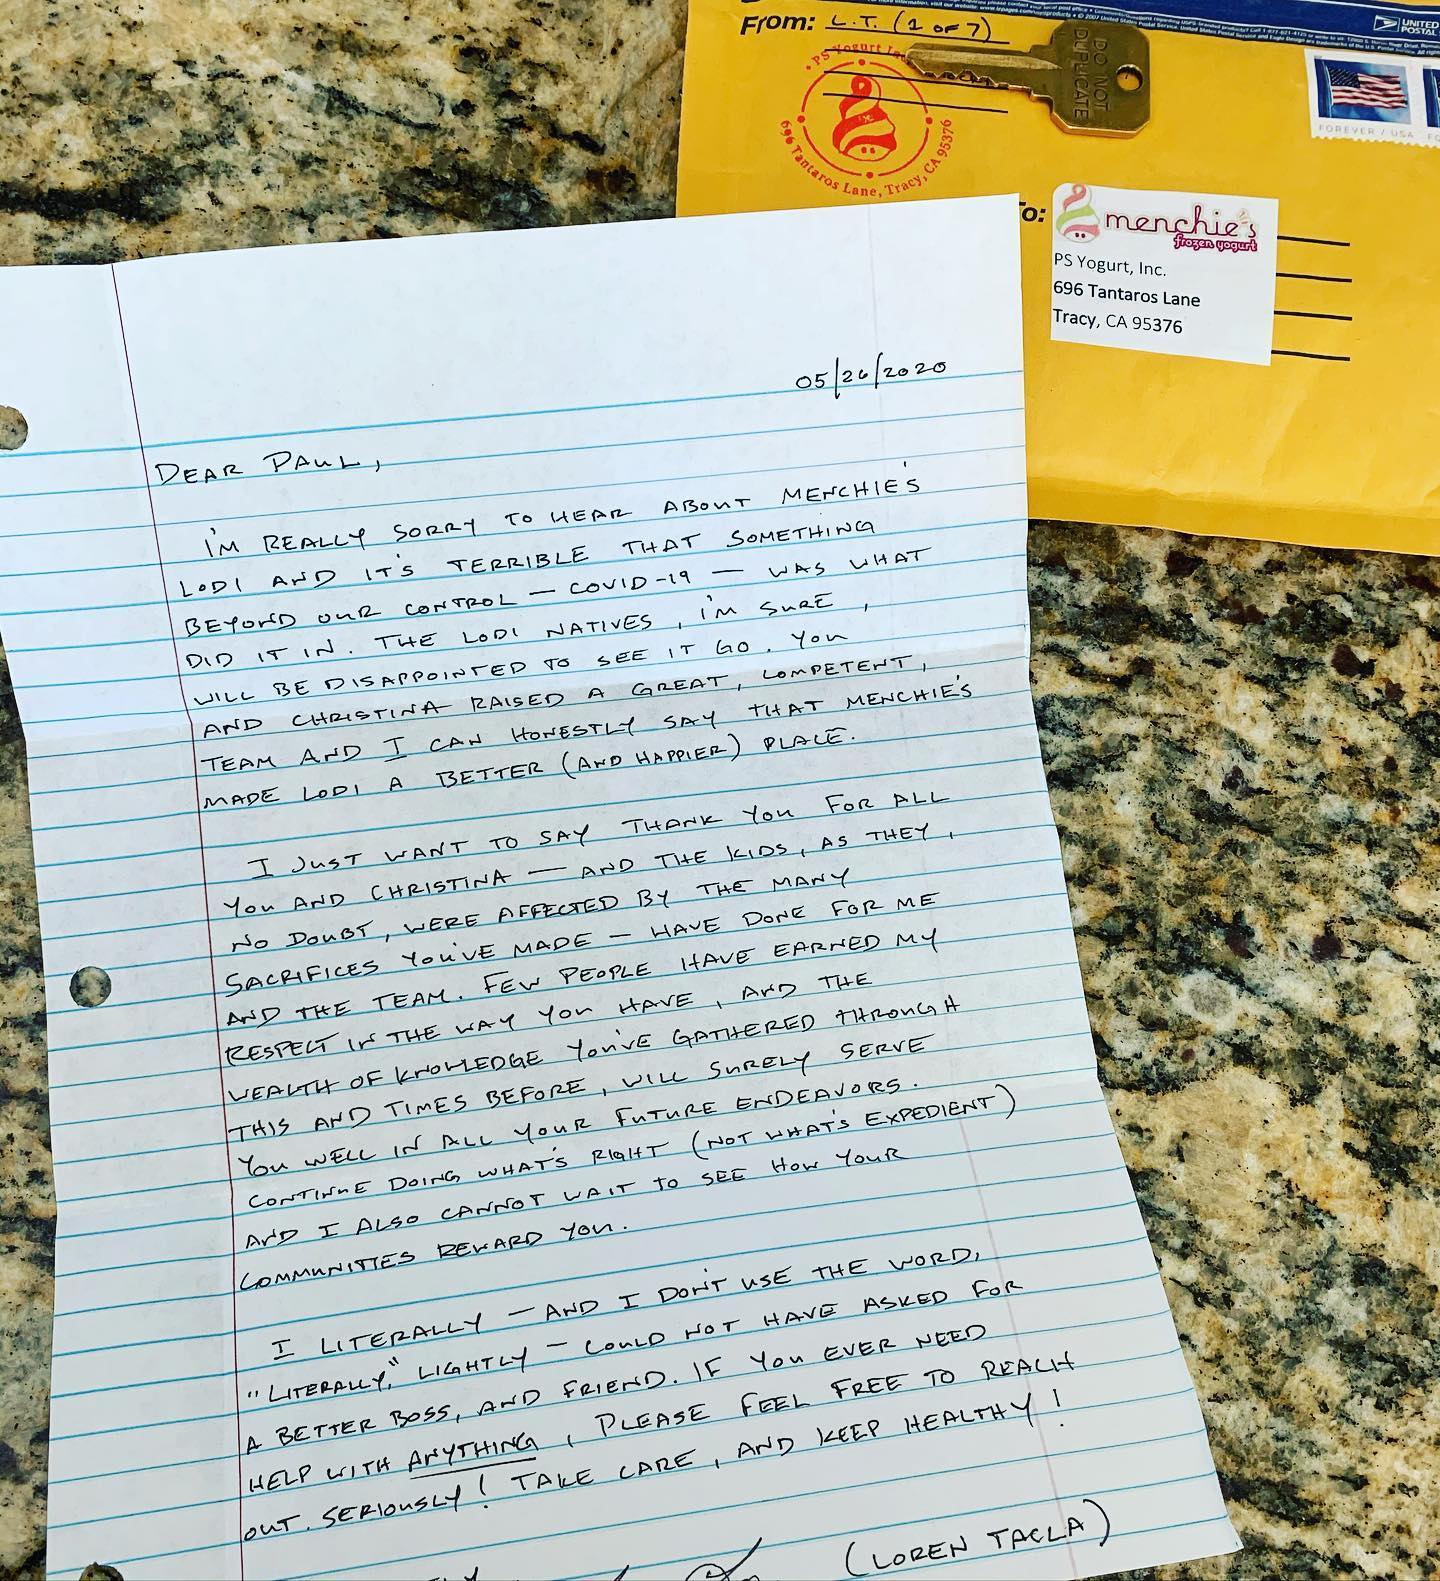 From: L.T. (1 OF 7)
PS Yogurt
696 Tantaros Lane, Tracy, CA 95376
DO NOT
DUPLICATE
UNITED
POSTAL
FOREVER / USA
To:
menchie's
frozen yogurt
PS Yogurt, Inc.
696 Tantaros Lane
Tracy, CA 95376
05/26/2020
DEAR PAUL,
I'M REALLY SORRY TO HEAR ABOUT MENCHIE'S
LODI AND IT'S TERRIBLE THAT SOMETHING
BEYOND OUR CONTROL — COVID-19 — WAS WHAT
DID IT IN. THE LODI NATIVES, I'M SURE,
WILL BE DISAPPOINTED TO SEE IT GO. YOU
AND CHRISTINA RAISED A GREAT, COMPETENT,
TEAM AND I CAN HONESTLY SAY THAT MENCHIE'S
MADE LODI A BETTER (AND HAPPIER) PLACE.
I JUST WANT TO SAY THANK YOU FOR ALL
YOU AND CHRISTINA — AND THE KIDS, AS THEY,
NO DOUBT, WERE AFFECTED BY THE MANY
SACRIFICES YOU'VE MADE — HAVE DONE FOR ME
AND THE TEAM. FEW PEOPLE HAVE EARNED MY
RESPECT IN THE WAY YOU HAVE, AND THE
WEALTH OF KNOWLEDGE YOU'VE GATHERED THROUGH
THIS AND TIMES BEFORE, WILL SURELY SERVE
YOU WELL IN ALL YOUR FUTURE ENDEAVORS.
CONTINUE DOING WHAT'S RIGHT (NOT WHAT'S EXPEDIENT)
AND I ALSO CANNOT WAIT TO SEE HOW YOUR
COMMUNITIES REWARD YOU.
I LITERALLY — AND I DON'T USE THE WORD,
"LITERALLY," LIGHTLY — COULD NOT HAVE ASKED FOR
A BETTER BOSS, AND FRIEND. IF YOU EVER NEED
HELP WITH ANYTHING, PLEASE FEEL FREE TO REACH
OUT. SERIOUSLY! TAKE CARE, AND KEEP HEALTHY!
(LOREN TACLA)